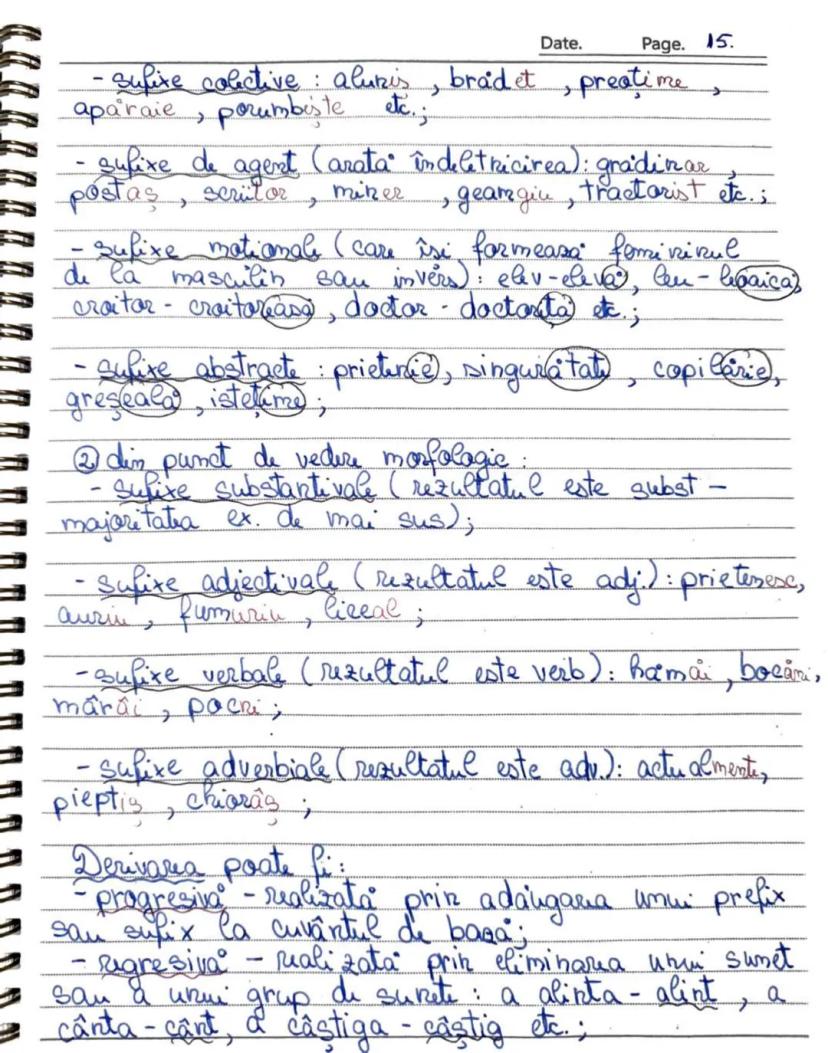 Date. Page. 15.
- sufixe colective : aluniș, brădet, preoțime,
apăraie, porumbiște etc.;
- sufixe de agent (arată îndeletnicirea): grădinar,
poștaș, scriitor, miner, geamgiu, tractorist etc.;
- sufixe moționale (care își formează femininul
de la masculin sau invers): elev-elevă, leu-leoaică,
croitor - croitoreasă, doctor - doctoriță etc.;
- sufixe abstracte : prietenie, singurătate, copilărie,
greșeală, istețime;
② din punct de vedere morfologic :
- sufixe substantivale (rezultatul este subst -
majoritatea ex. de mai sus);
- sufixe adjectivale (rezultatul este adj.): prietenesc,
auriu, fumuriu, liceal;
- sufixe verbale (rezultatul este verb): hămăi, bocăni,
mârâi, pocni;
- sufixe adverbiale (rezultatul este adv.): actualmente,
pieptiș, chiorâș;
Derivarea poate fi:
- progresivă - realizată prin adăugarea unui prefix
sau sufix la cuvântul de bază;
- regresivă - realizată prin eliminarea unui sunet
sau a unui grup de sunete : a alinta - alint, a
cânta - cânt, a câștiga - câștig etc.;